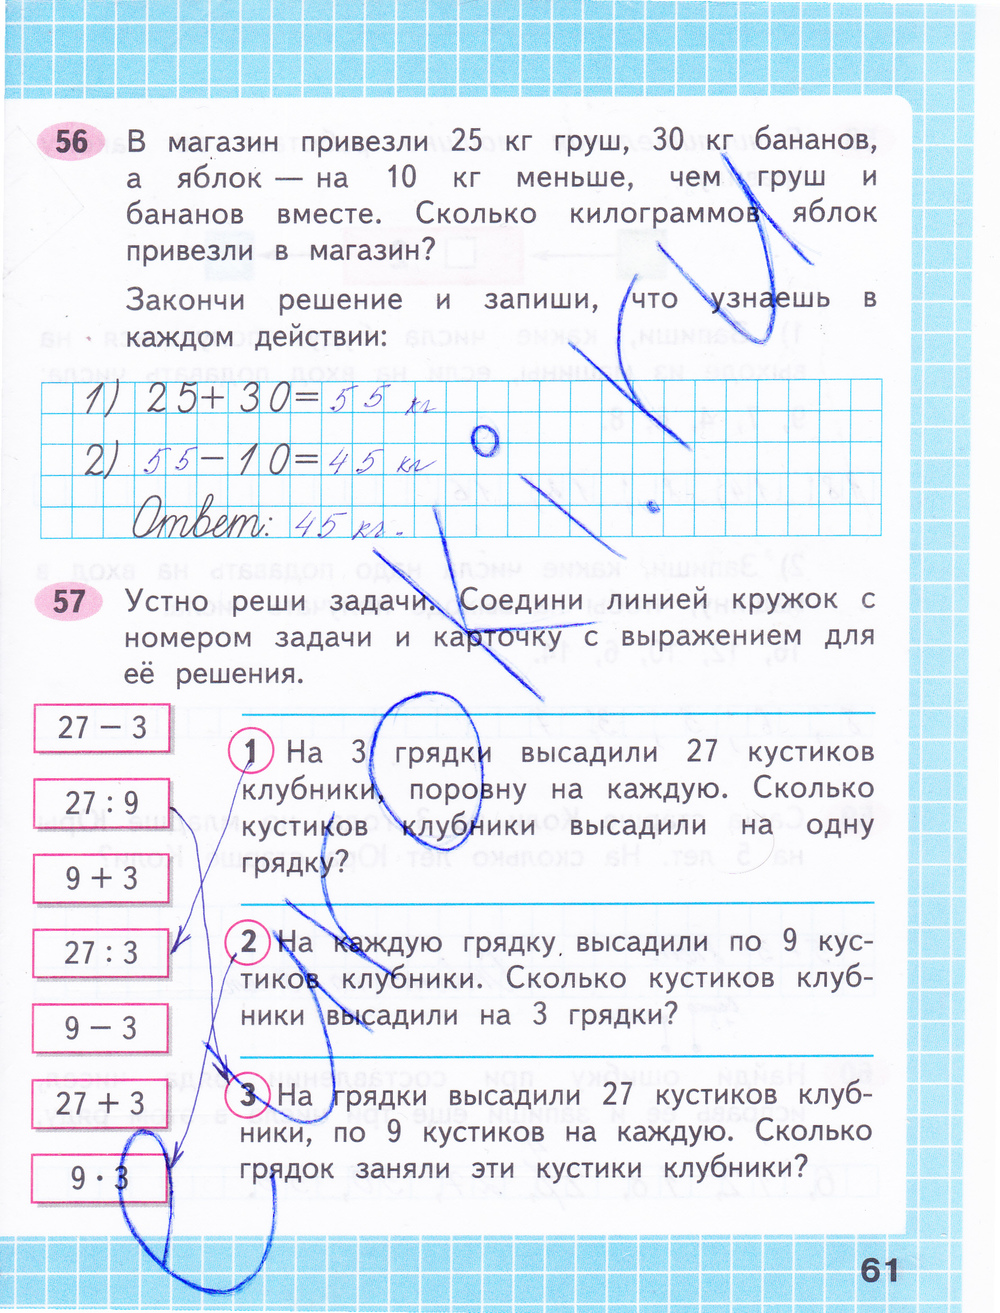 56 В магазин привезли 25 кг груш, 30 кг бананов,
а яблок — на 10 кг меньше, чем груш и
бананов вместе. Сколько килограммов яблок
привезли в магазин?
Закончи решение и запиши, что узнаешь в
каждом действии:
1) 25+30=55 кг
2) 55-10=45 кг
Ответ: 45 кг.
57 Устно реши задачи. Соедини линией кружок с
номером задачи и карточку с выражением для
её решения.
27 − 3
27 : 9
9 + 3
27 : 3
9 − 3
27 + 3
9 · 3
1 На 3 грядки высадили 27 кустиков
клубники, поровну на каждую. Сколько
кустиков клубники высадили на одну
грядку?
2 На каждую грядку высадили по 9 кус-
тиков клубники. Сколько кустиков клуб-
ники высадили на 3 грядки?
3 На грядки высадили 27 кустиков клуб-
ники, по 9 кустиков на каждую. Сколько
грядок заняли эти кустики клубники?
61